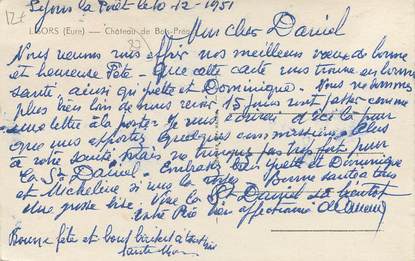 Lyons la Forêt le 10-12-1951
LISORS (Eure) — Château de Bois-Préau
Mon cher Daniel
Nous venons vous offrir nos meilleurs vœux de bonne
et heureuse Fête - Que cette carte vous trouve en bonne
santé, ainsi que Yvette et Dominique. Nous ne sommes
plus bien loin de vous revoir. 15 jours vont passer comme
une lettre à la poste. Je vous d'ici là pour
que vous apportiez quelques commissions.
à votre santé, Mais ne pas trop fort pour
la St Daniel. Embrassez bien Yvette et Dominique
et Micheline si vous la voyez. Bonne santé à tous
Une grosse bise. Vive la St Daniel et à bientôt
Votre bien affectionné
Bonne fête et bons baisers à